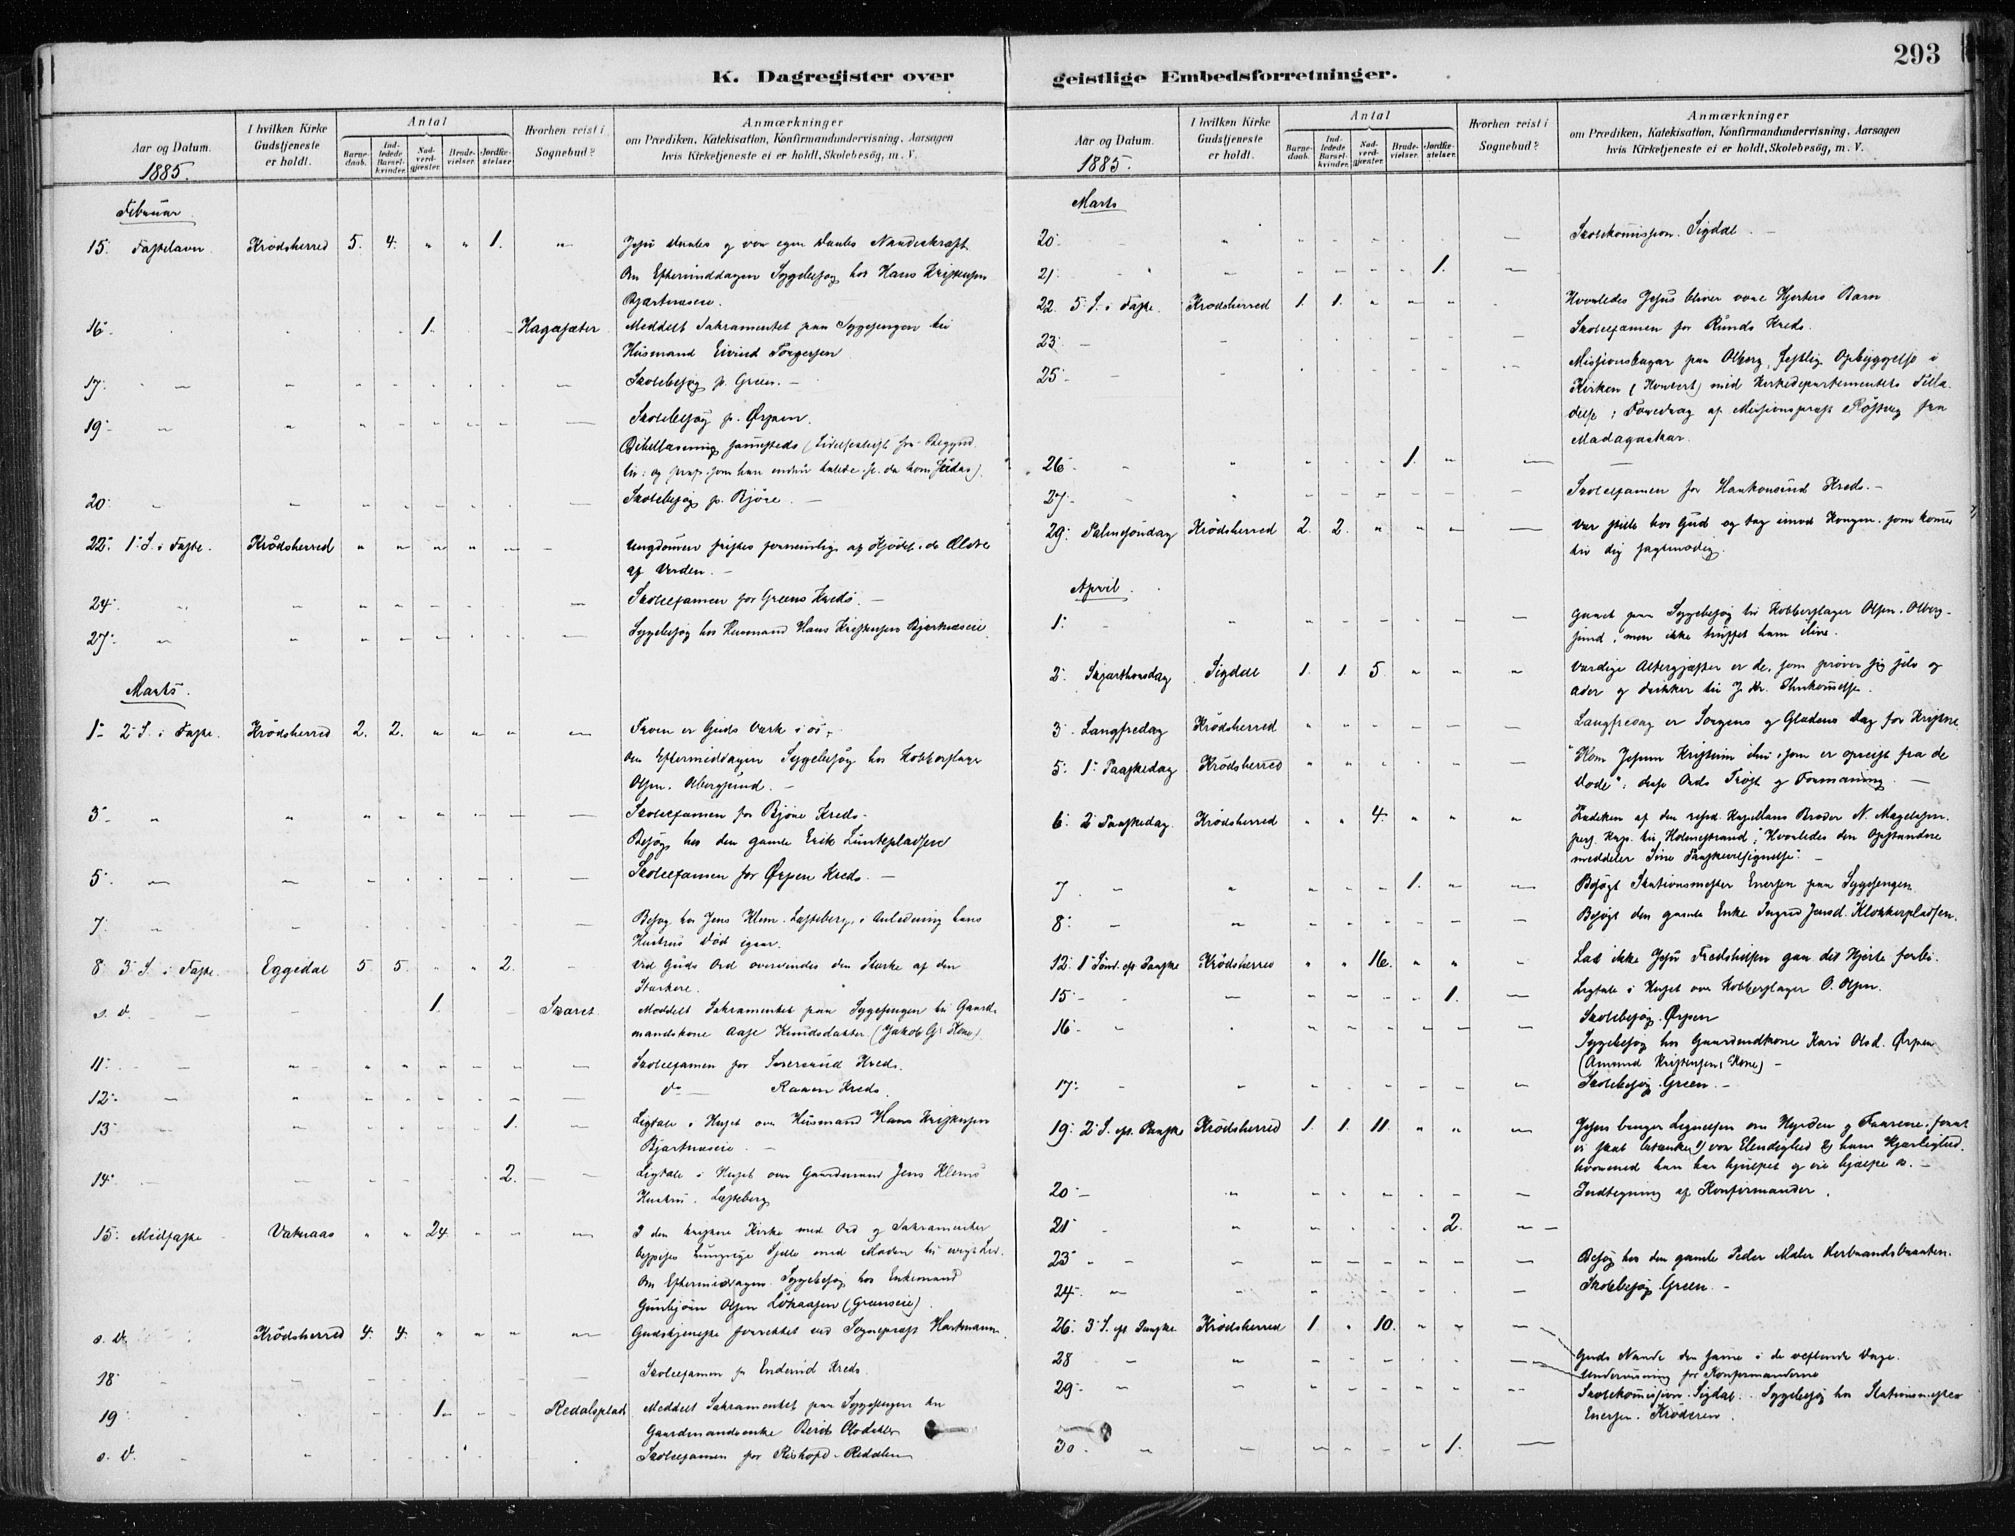 293
K. Dagregister over
Aar og Datum.
1885.
I hvilken Kirke Gudstjeneste er holdt.
Antal
Barne-daab.
Ind-ledede Barsel-kvinder.
Nad-verd-gjester.
Brude-vielser.
Jordfæ-stelser.
Hvorhen reist i Sognebud?
Anmærkninger
om Prædiken, Katekisation, Konfirmandundervisning, Aarsagen
hvis Kirketjeneste ei er holdt, Skolebesøg, m. V.
Februar
15. Fastelavn Krødsherred 5. 4. " " 1. " Jesu Daabs og vor egen Daabs Naadeskraft
Om Eftermiddagen Sygebesøg hos Hans Kristensen
Bjertnæseie.
16. 1. Hagasæter Meddelt Sakramentet paa Sygesengen til
Husmand Eivind Torgersen
17. Skolebesøg p. Green. –
19. Skolebesøg p. Ørpen.
Bibellæsning samesteds
20. Skolebesøg p. Bjøre. –
22. 1. S. i Faste. Krødsherred " " " " " Ungdommen fristes fornemlig af Kjødet, de Ældre
af Verden. –
24. Skoleexamen for Greens Kreds. –
27. Sygebesøg hos Husmand Hans Kristensen Bjertnæseie.
Marts.
1. 2. S. i Faste. Krødsherred 2. 2. " " " Troen er Guds Værk i os.
Om Eftermiddagen Sygebesøg hos Kobberslager
Olsen. Olbergsund. –
3. Skoleexamen for Bjøre Kreds.
Besøg hos den gamle Erik Lunkepladsen
5. Skoleexamen for Ørpen Kreds. –
7. Besøg hos Jens Klem. Læsteberg, i Anledning hans
Hustrus Død igaar.
8. 3. S. i Faste Eggedal 5. 5. " " 2. Ved Guds Ord overvindes den Stærke af den
Stærkere.
s. D. 1. Skaret Meddelt Sakramentet paa Sygesengen til Gaard-
mandskone Aase Knudsdatter (Jakob Gs Kone).
11. Skoleexamen for Kreds.
12. do Raaen Kreds.
13. 1. Ligtale i Huset over Husmand Hans Kristensen
Bjertnæseie. –
14. 2. Ligtale i Huset over Gaardmand Jens Klems
Hustru. Læsteberg
15. Midfaste Vatnaas " " 24. I den kristne Kirke med Ord og Sakramenter
bespises hungrige Sjæle med Maden til evigt Liv.
Om Eftermiddagen Sygebesøg hos Enkemand
Gunbjørn Olsen Løkaasen (Grønseie).
s. D. Krødsherred 4. 4. " " " Gudstjeneste forrettet ved Sognepræst Hartmann.
18. Skoleexamen p. Enderud Kreds.
19. 1. Redalsplad. Meddelt Sakramentet paa Sygesengen til
Gaardmandsenke Berit
s. D. Skoleexamen for Redalen
geistlige Embedsforretninger.
Aar og Datum.
1885.
I hvilken Kirke Gudstjeneste er holdt.
Antal
Barne-daab.
Ind-ledede Barsel-kvinder.
Nad-verd-gjester.
Brude-vielser.
Jordfæ-stelser.
Hvorhen reist i Sognebud?
Anmærkninger
om Prædiken, Katekisation, Konfirmandundervisning, Aarsagen
hvis Kirketjeneste ei er holdt, Skolebesøg, m. V.
Marts
20. Skolekomission. Sigdal –
21. 1.
22. 5. S. i Faste. Krødsherred 1. 1. " " " Hvorledes Jesus bliver vore Hjerters Barn
23. Skoleexamen for Kreds.
25. Missionsbazar paa Olberg, festlig Opbyggelse i
Kirken (Konsert) med Kirkedepartementets Tilla-
delse; Foredrag af Missionspræst Røstvig fra
Madagaskar.
26. 1.
27. Skoleexamen for Kreds. –
29. Palmesøndag Krødsherred 2. 2. " " " Vær stille hos Gud og tag imod Kongen, som kommer
til dig sagtmodig.
April.
1. Gaaet paa Sygebesøg til Kobberslager Olsen. Olberg-
sund, men ikke truffet ham ilive.
2. Skjærthorsdag Sigdal 1. 1. 5. Værdige Altergjæster er de, som prøver sig selv og
æder og drikker til J. Kr. Ihukommelse.
3. Langfredag Krødsherred Langfredag er Sorgens og Glædens Dag for Kristne
5. 1. Paaskedag Krødsherred "Kom Jesum Kristum ihu, som er opreist fra de
Døde"; disse Ords Trøst og Formaning. –
6. 2. Paaskedag. Krødsherred " " 4. Prædiken af den resid. Kapellans Broder N. Magelssen.
pers. Kap. til Holmestrand; "Hvorledes den Opstandne
meddeler Sine Paaskevelsignelse". –
7. 1. Besøgt Stationsmester Enersen paa Sygesengen
8. Besøgt den gamle Enke Ingrid Jensd. Klokkerpladsen.
12. 1. Sønd. eft. Paaske Krødsherred " " 16. Lad ikke Jesu Fredshilsen gaa dit Hjerte forbi.
15. 1. Ligtale i Huset over Kobberslager O. Olsen.
16. Skolebesøg. Ørpen
Sygebesøg hos Gaardmdkone Kari Olsd. Ørpen
(Amund Kristensens Kone) –
17. Skolebesøg. Green. –
19. 2. S. eft. Paaske Krødsherred 1. 1. 11. Jesus bruger Lignelsen om Hyrden og Faarene, forat
vi skal betænke 1) vor Elendighed 2) hans Kjærlighed,
hvormed han har hjulpet og vil hjælpe os. –
20. Indtegning af Konfirmander.
21. 2.
23. Besøg hos den gamle Peder Maler Herbrandsbraaten.
24. Skolebesøg Green. –
26. 3. S. eft. Paaske Krødsherred 1. " 10.
28. Guds Naade den samme i de vexlende Dage.
Undervisning for Konfirmanderne
29. Skolekomission. Sigdal. Sygebesøg hos Stationsmester
Enersen. Krøderen.
30. 1.